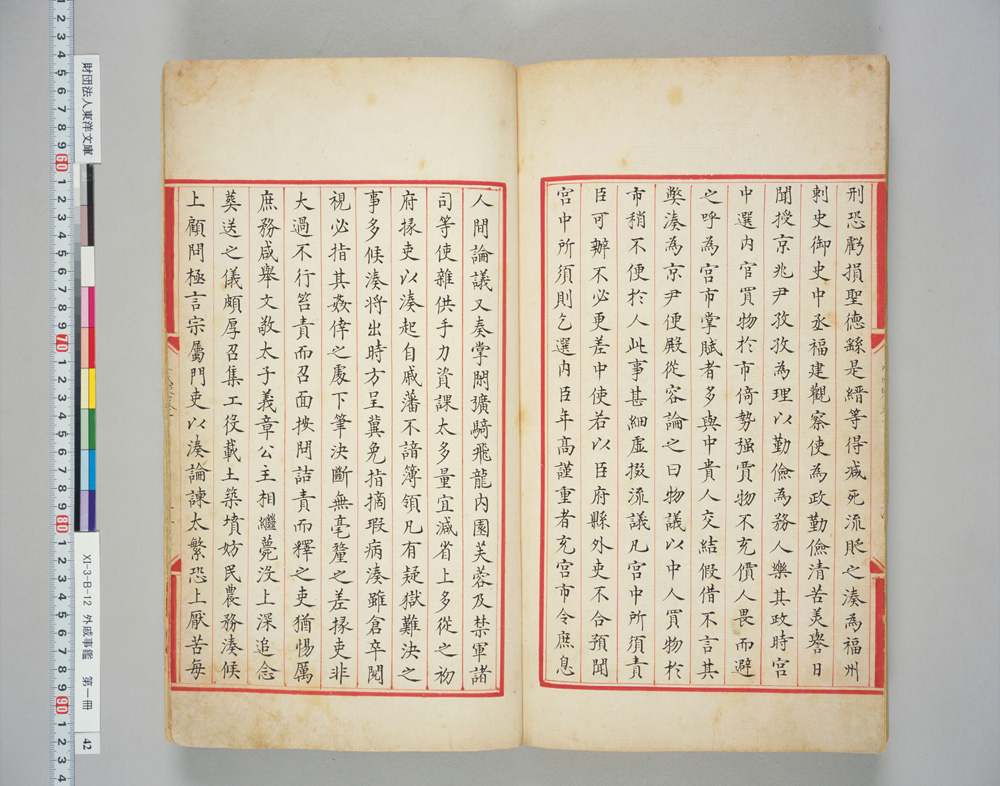 刑恐虧損聖德繇是縉等得減死流貶之湊為福州
刺史御史中丞福建觀察使為政勤儉清苦美譽日
聞授京兆尹孜孜為理以勤儉為務人樂其政時宮
中選内官買物於市倚勢强賈物不充價人畏而避
之呼為宮市掌賦者多與中貴人交結假借不言其
獘湊為京尹便殿從容論之曰物議以中人買物於
市稍不便於人此事甚細虛掇流議凡宮中所須責
臣可辦不必更差中使若以臣府縣外吏不合預聞
宮中所須則乞選内臣年高謹重者充宮市令庶息
人間論議又奏掌閑彍騎飛龍内園芙蓉及禁軍諸
司等使雜供手力資課太多量宜減省上多從之初
府掾吏以湊起自戚藩不諳簿領凡有疑獄難決之
事多候湊將出時方呈冀免指摘瑕病湊雖倉卒閱
視必指其姦倖之處下筆決斷無毫釐之差掾吏非
大過不行笞責而召面按問詰責而釋之吏猶惕厲
庶務咸舉文敬太子義章公主相繼薨沒上深追念
葬送之儀頗厚召集工役載土築墳妨民農務湊候
上顧問極言宗屬門吏以湊論諫太繁恐上厭苦每
財団法人東洋文庫
XI-3-B-12 外戚事鑑 第一冊 42